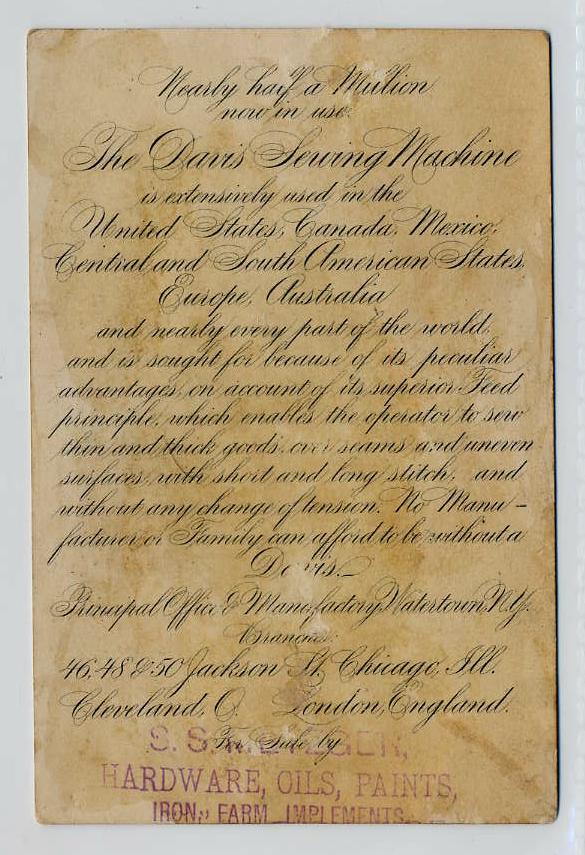 Nearly half a Million
now in use.
The Davis Sewing Machine
is extensively used in the
United States, Canada, Mexico,
Central and South American States,
Europe, Australia
and nearly every part of the world,
and is sought for because of its peculiar
advantages, on account of its superior Feed
principle, which enables the operator to sew
thin and thick goods, over seams and uneven
surfaces, with short and long stitch, and
without any change of tension. No Manu-
facturer or Family can afford to be without a
Davis.
Principal Office & Manufactory, Watertown, N.Y.
Branches:
46, 48 & 50 Jackson St. Chicago, Ill.
Cleveland, O. London, England.
For Sale by
S. S.
HARDWARE, OILS, PAINTS,
IRON, FARM IMPLEMENTS.